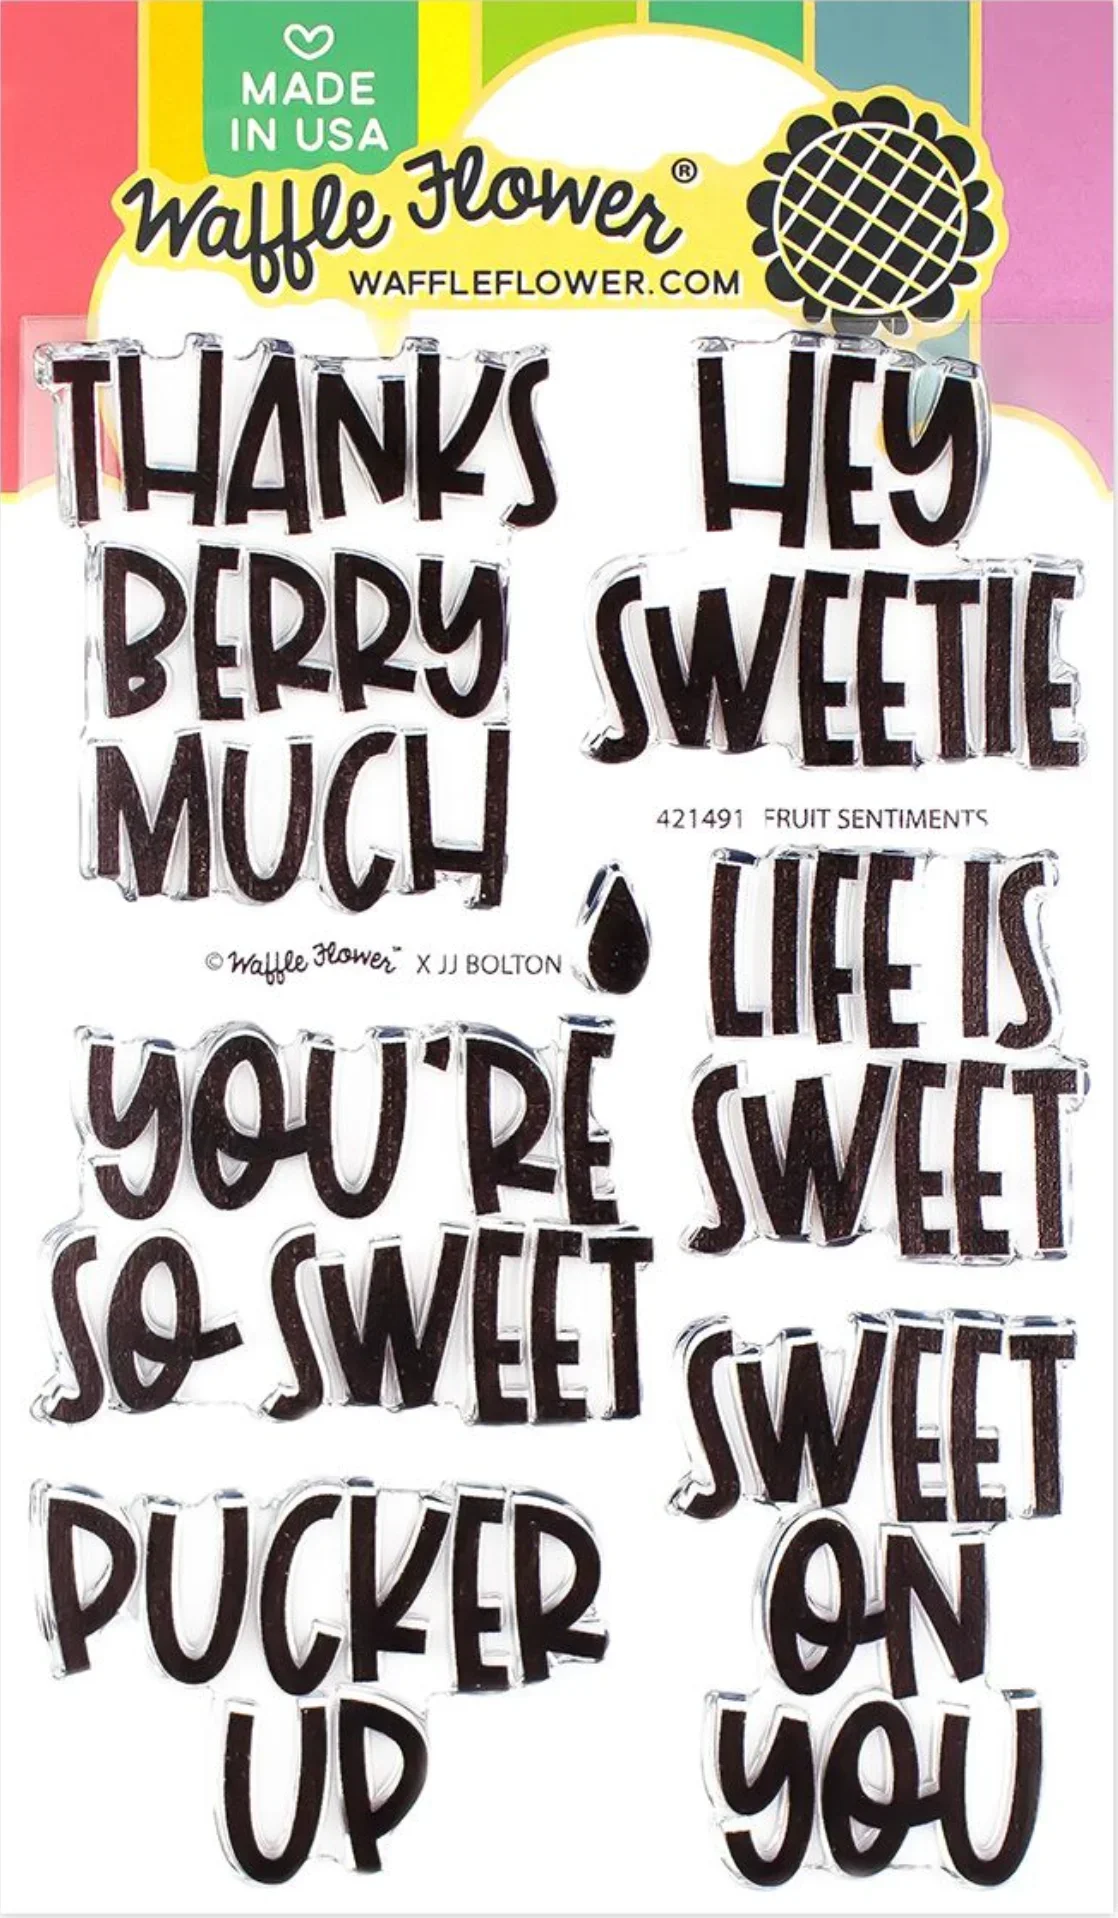 MADE
IN USA
Waffle Flower®
WAFFLEFLOWER.COM
THANKS
BERRY
MUCH
HEY
SWEETIE
421491 FRUIT SENTIMENTS
© Waffle Flower™ X JJ BOLTON
LIFE IS
SWEET
YOU'RE
SO SWEET
SWEET
ON
YOU
PUCKER
UP